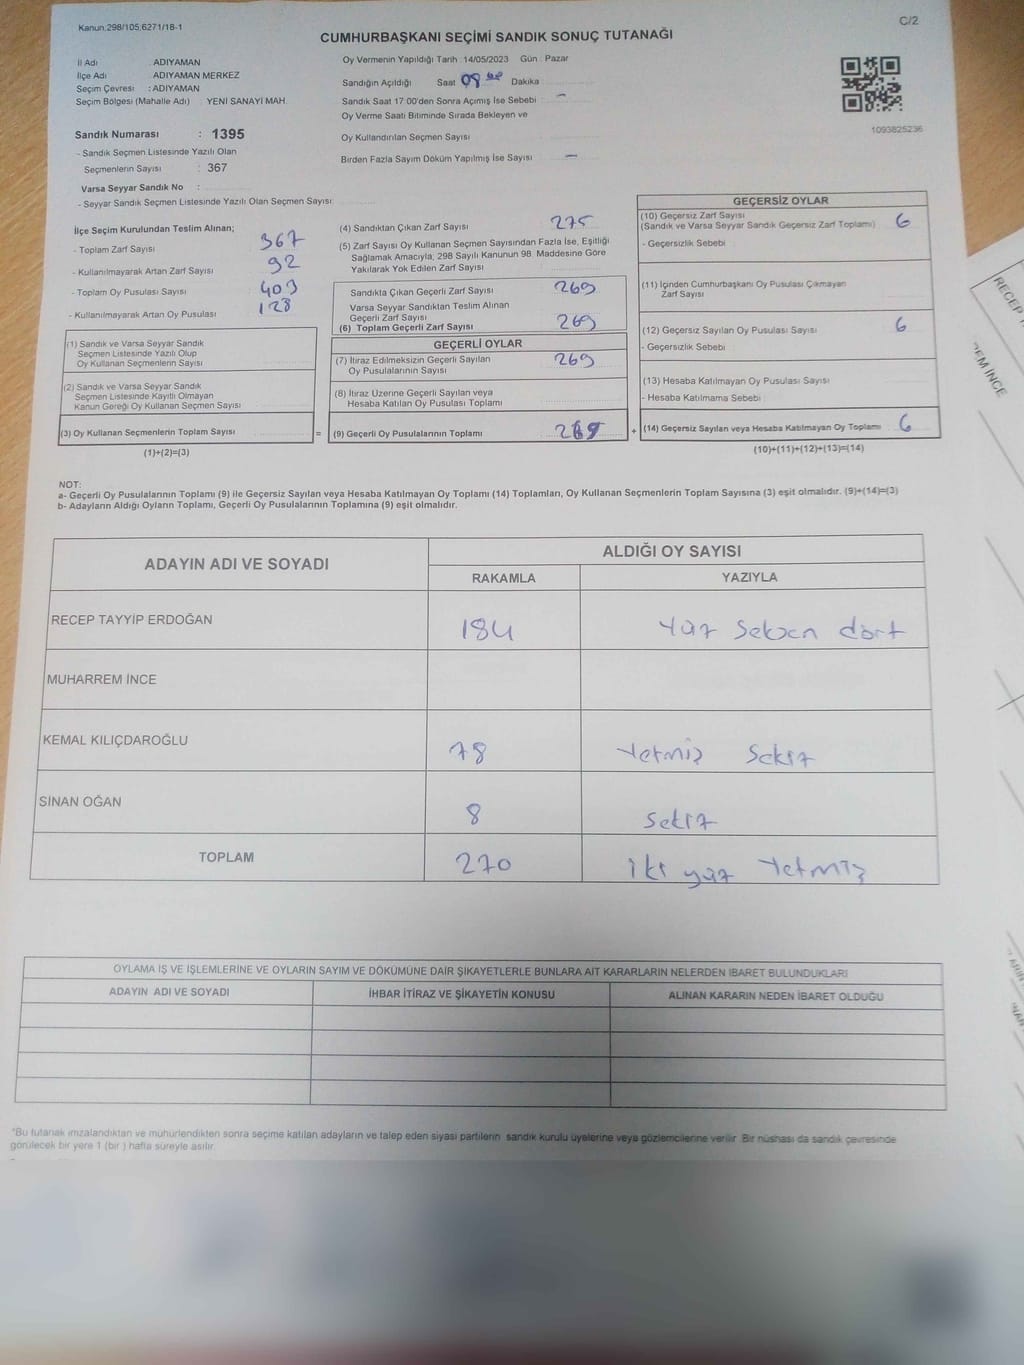 Kanun;298/105;6271/18-1
C/2
CUMHURBAŞKANI SEÇİMİ SANDIK SONUÇ TUTANAĞI
İl Adı : ADIYAMAN
İlçe Adı : ADIYAMAN MERKEZ
Seçim Çevresi : ADIYAMAN
Seçim Bölgesi (Mahalle Adı) : YENİ SANAYİ MAH.
Sandık Numarası : 1395
- Sandık Seçmen Listesinde Yazılı Olan
Seçmenlerin Sayısı : 367
Varsa Seyyar Sandık No :
- Seyyar Sandık Seçmen Listesinde Yazılı Olan Seçmen Sayısı:
Oy Vermenin Yapıldığı Tarih : 14/05/2023 Gün : Pazar
Sandığın Açıldığı Saat 08 00 Dakika
Sandık Saat 17:00'den Sonra Açımış İse Sebebi : —
Oy Verme Saati Bitiminde Sırada Bekleyen ve
Oy Kullandırılan Seçmen Sayısı
Birden Fazla Sayım Döküm Yapılmış İse Sayısı —
1093825236
İlçe Seçim Kurulundan Teslim Alınan;
- Toplam Zarf Sayısı 367
- Kullanılmayarak Artan Zarf Sayısı 92
- Toplam Oy Pusulası Sayısı 403
- Kullanılmayarak Artan Oy Pusulası 128
(1) Sandık ve Varsa Seyyar Sandık
Seçmen Listesinde Yazılı Olup
Oy Kullanan Seçmenlerin Sayısı
(2) Sandık ve Varsa Seyyar Sandık
Seçmen Listesinde Kayıtlı Olmayan
Kanun Gereği Oy Kullanan Seçmen Sayısı
(3) Oy Kullanan Seçmenlerin Toplam Sayısı =
(1)+(2)=(3)
(4) Sandıktan Çıkan Zarf Sayısı 275
(5) Zarf Sayısı Oy Kullanan Seçmen Sayısından Fazla İse, Eşitliği
Sağlamak Amacıyla; 298 Sayılı Kanunun 98. Maddesine Göre
Yakılarak Yok Edilen Zarf Sayısı
Sandıkta Çıkan Geçerli Zarf Sayısı 269
Varsa Seyyar Sandıktan Teslim Alınan
Geçerli Zarf Sayısı
(6) Toplam Geçerli Zarf Sayısı 269
GEÇERLİ OYLAR
(7) İtiraz Edilmeksizin Geçerli Sayılan
Oy Pusulalarının Sayısı 269
(8) İtiraz Üzerine Geçerli Sayılan veya
Hesaba Katılan Oy Pusulası Toplamı
(9) Geçerli Oy Pusulalarının Toplamı 269 +
GEÇERSİZ OYLAR
(10) Geçersiz Zarf Sayısı
(Sandık ve Varsa Seyyar Sandık Geçersiz Zarf Toplamı) 6
- Geçersizlik Sebebi
(11) İçinden Cumhurbaşkanı Oy Pusulası Çıkmayan
Zarf Sayısı
(12) Geçersiz Sayılan Oy Pusulası Sayısı 6
- Geçersizlik Sebebi
(13) Hesaba Katılmayan Oy Pusulası Sayısı
- Hesaba Katılmama Sebebi
(14) Geçersiz Sayılan veya Hesaba Katılmayan Oy Toplamı 6
(10)+(11)+(12)+(13)=(14)
NOT:
a- Geçerli Oy Pusulalarının Toplamı (9) ile Geçersiz Sayılan veya Hesaba Katılmayan Oy Toplamı (14) Toplamları, Oy Kullanan Seçmenlerin Toplam Sayısına (3) eşit olmalıdır. (9)+(14)=(3)
b- Adayların Aldığı Oyların Toplamı, Geçerli Oy Pusulalarının Toplamına (9) eşit olmalıdır.
ADAYIN ADI VE SOYADI
ALDIĞI OY SAYISI
RAKAMLA YAZIYLA
RECEP TAYYİP ERDOĞAN 184 Yüz Seksen dört
MUHARREM İNCE
KEMAL KILIÇDAROĞLU 78 Yetmiş Sekiz
SİNAN OĞAN 8 Sekiz
TOPLAM 270 iki yüz Yetmiş
OYLAMA İŞ VE İŞLEMLERİNE VE OYLARIN SAYIM VE DÖKÜMÜNE DAİR ŞİKAYETLERLE BUNLARA AİT KARARLARIN NELERDEN İBARET BULUNDUKLARI
ADAYIN ADI VE SOYADI İHBAR İTİRAZ VE ŞİKAYETİN KONUSU ALINAN KARARIN NEDEN İBARET OLDUĞU
*Bu tutanak imzalandıktan ve mühürlendikten sonra seçime katılan adayların ve talep eden siyasi partilerin sandık kurulu üyelerine veya gözlemcilerine verilir. Bir nüshası da sandık çevresinde
görülecek bir yere 1 (bir ) hafta süreyle asılır.
RECEP
REM İNCE